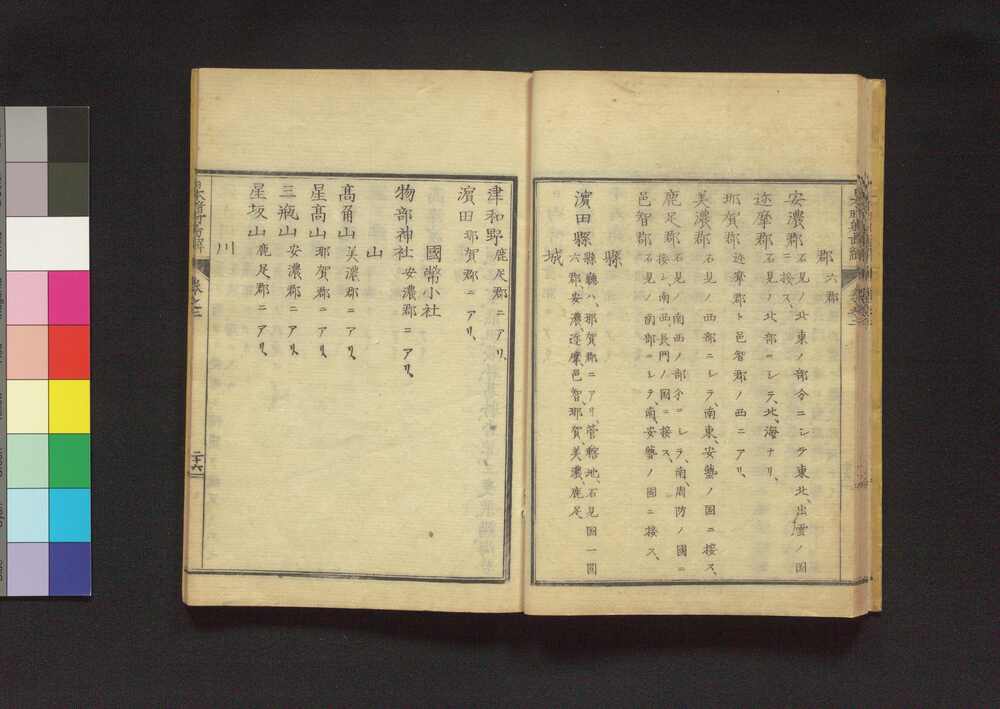 郡 六郡
安濃郡 石見ノ北東ノ部分ニシテ東北、出雲ノ國
ニ接ス、
迩摩郡 石見ノ北部ニシテ、北、海ナリ、
那賀郡 迩摩郡ト邑智郡ノ西ニアリ、
美濃郡 石見ノ西部ニシテ、南東、安藝ノ國ニ接ス、
鹿足郡 石見ノ南西ノ部分ニシテ、南、周防ノ國ニ
接シ、南西、長門ノ國ニ接ス、
邑智郡 石見ノ南部ニシテ、南、安藝ノ國ニ接ス、
縣
濵田縣 縣廳ハ、那賀郡ニアリ管轄地、石見國一圓
六郡、安濃、迩摩、邑智、那賀、美濃、鹿足
城
津和野 鹿足郡ニアリ、
濵田 那賀郡ニアリ、
國幣小社
物部神社 安濃郡ニアリ、
山
髙角山 美濃郡ニアリ、
星髙山 那賀郡ニアリ、
三瓶山 安濃郡ニアリ、
星坂山 鹿足郡ニアリ、
川
卷之三
二十六